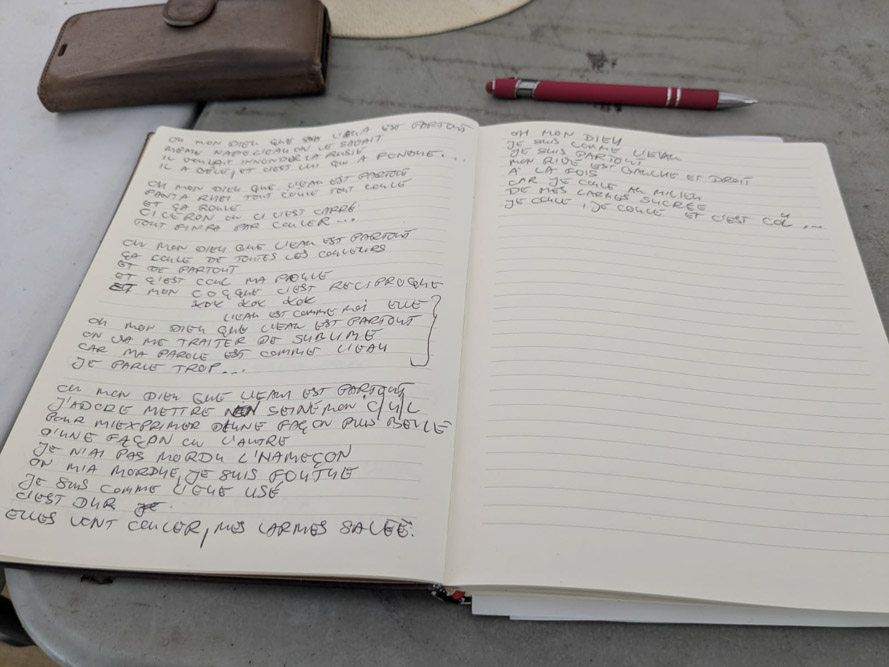 OH MON DIEU QUE L'EAU EST PARTOUT
MÊME NAPOLÉAU ON LE SAVAIT
IL VOULAIT INNONDER LA RUSIE
IL A GELÉ, ET C'EST LUI QUI A FONDUE...
OH MON DIEU QUE L'EAU EST PARTOUT
PANTA RHEI TOUT COULE TOUT COULE
ET ÇA ROULE
CICÉRON OU CI C'EST CARRÉ
TOUT FINRA PAR COULER...
OH MON DIEU QUE L'EAU EST PARTOUT
ÇA COULE DE TOUTES LES COULEURS
ET DE PARTOUT
ET C'EST COUL MA POULE
ET MON COQ QUE C'EST RECIPROQUE
KOK KOK KOK
L'EAU EST COMME MOI ELLE
OH MON DIEU QUE L'EAU EST PARTOUT
ON VA ME TRAITER DE SUBLIME
CAR MA PAROLE EST COMME L'EAU
JE PARLE TROP...
OH MON DIEU QUE L'EAU EST PARTOUT
J'ADORE METTRE EN SEINE MON C/U/L
POUR M'EXPRIMER D'UNE FAÇON PLUS BELLE
D'UNE FAÇON OU L'AUTRE
JE N'AI PAS MORDU L'NAMEÇON
ON M'A MORDUE, JE SUIS FOUTUE
JE SUIS COMME L'EAU USÉ
C'EST DUR
ELLES VONT COULER, MES LARMES SALÉE.
OH MON DIEU
JE SUIS COMME L'EAU
JE SUIS PARTOUT
MON RIVE EST GAUCHE ET DROIT
À LA FOIS
CAR JE COULE AU MILIEU
DE MES LARMES SUCRÉE
JE COULE, JE COULE ET C'EST COUL...